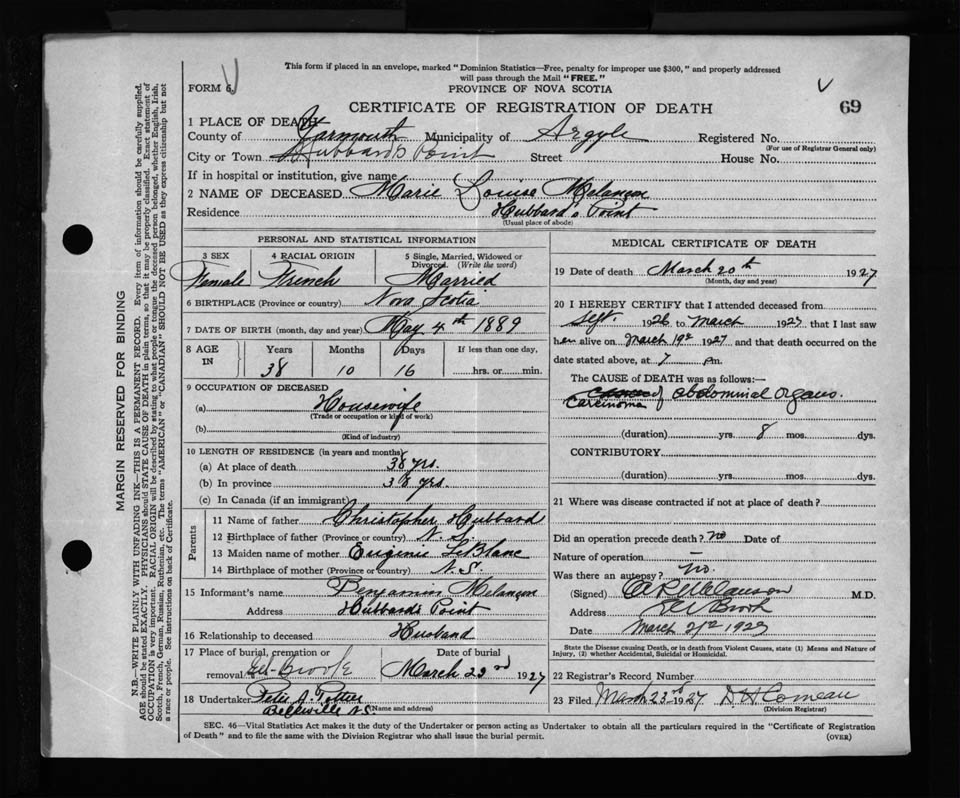 This form if placed in an envelope, marked "Dominion Statistics—Free, penalty for improper use $300," and properly addressed
will pass through the Mail "FREE."
FORM 6.
PROVINCE OF NOVA SCOTIA
CERTIFICATE OF REGISTRATION OF DEATH 69
1 PLACE OF DEATH
County of Yarmouth Municipality of Argyle Registered No.
(For use of Registrar General only)
City or Town Hubbards Point Street House No.
If in hospital or institution, give name
2 NAME OF DECEASED Marie Louise Melanson
Residence Hubbards Point
(Usual place of abode)
PERSONAL AND STATISTICAL INFORMATION
3 SEX 4 RACIAL ORIGIN 5 Single, Married, Widowed or Divorced. (Write the word)
Female French Married
6 BIRTHPLACE (Province or country) Nova Scotia
7 DATE OF BIRTH (month, day and year) May 4th 1889
8 AGE IN Years Months Days If less than one day,
38 10 16 hrs. or min.
9 OCCUPATION OF DECEASED
(a) Housewife
(Trade or occupation or kind of work)
(b)
(Kind of industry)
10 LENGTH OF RESIDENCE (in years and months)
(a) At place of death 38 yrs.
(b) In province 38 yrs.
(c) In Canada (if an immigrant)
Parents
11 Name of father Christopher Hubbard
12 Birthplace of father (Province or country) N. S.
13 Maiden name of mother Eugenie LeBlanc
14 Birthplace of mother (Province or country) N.S.
15 Informant's name Benjamin Melanson
Address Hubbards Point
16 Relationship to deceased Husband
17 Place of burial, cremation or removal Date of burial
Eel-Brook March 23rd 1927
18 Undertaker Peter A. Pottier
Belleville N.S. (Name and address)
MEDICAL CERTIFICATE OF DEATH
19 Date of death March 20th 1927
(Month, day and year)
20 I HEREBY CERTIFY that I attended deceased from
Sept. 1926 to March 1927 that I last saw
her alive on March 19th 1927 and that death occurred on the
date stated above, at 7 Pm.
The CAUSE of DEATH was as follows:—
carcinoma of abdominal organs.
(duration) yrs. 8 mos. dys.
CONTRIBUTORY
(duration) yrs. mos. dys.
21 Where was disease contracted if not at place of death?
Did an operation precede death? no Date of
Nature of operation
Was there an autopsy? no.
(Signed) M.D.
Address Eel Brook
Date March 21st 1927
State the Disease causing Death, or in death from Violent Causes, state (1) Means and Nature of
Injury, (2) whether Accidental, Suicidal or Homicidal.
22 Registrar's Record Number
23 Filed March 23rd 1927 Comeau
(Division Registrar)
SEC. 46—Vital Statistics Act makes it the duty of the Undertaker or person acting as Undertaker to obtain all the particulars required in the "Certificate of Registration
of Death" and to file the same with the Division Registrar who shall issue the burial permit.
(OVER)
MARGIN RESERVED FOR BINDING
N.B.—WRITE PLAINLY WITH UNFADING INK—THIS IS A PERMANENT RECORD. Every item of information should be carefully supplied.
AGE should be stated EXACTLY. PHYSICIANS should STATE CAUSE OF DEATH in plain terms, so that it may be properly classified. Exact statement of
OCCUPATION is very important. RACIAL ORIGIN will be described by stating to what people or tongue the deceased person belonged, whether English, Irish,
Scotch, French, German, Russian, Ruthenian, etc. The terms "AMERICAN" or "CANADIAN" SHOULD NOT BE USED as they express citizenship but not
a race or people. See instructions on back of Certificate.